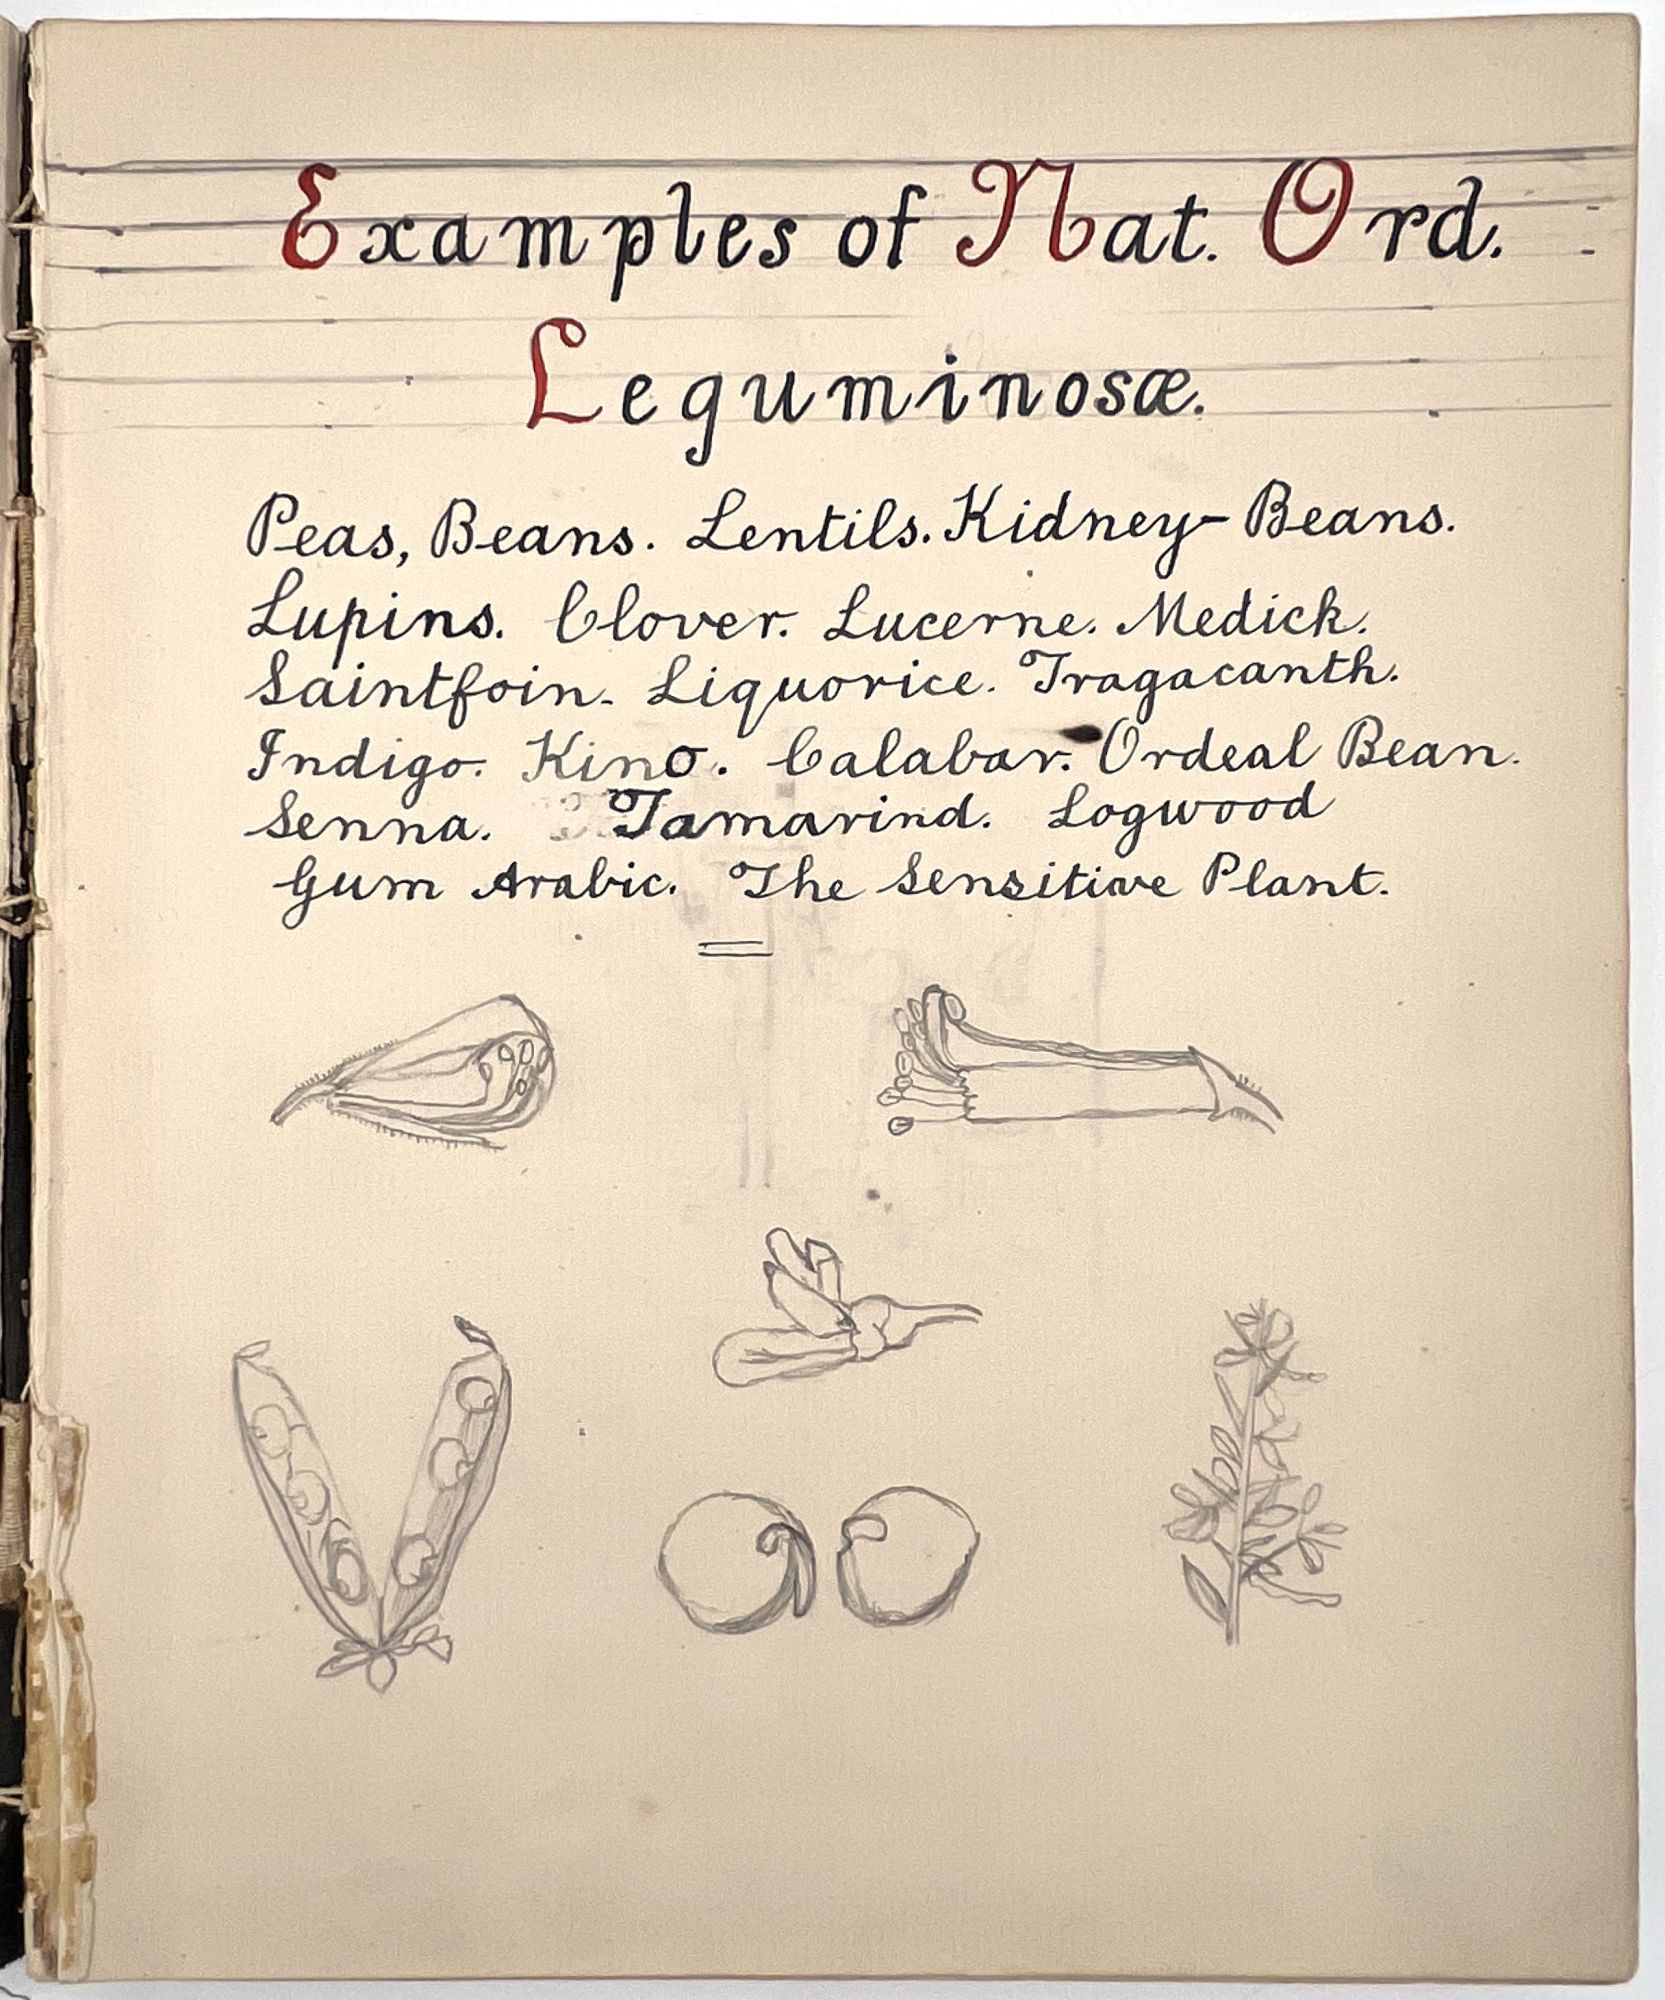 Examples of Nat. Ord.
Leguminosæ.
Peas, Beans. Lentils. Kidney-Beans.
Lupins. Clover. Lucerne. Medick.
Saintfoin. Liquorice. Tragacanth.
Indigo. Kino. Calabar. Ordeal Bean.
Senna. Tamarind. Logwood
Gum Arabic. The Sensitive Plant.